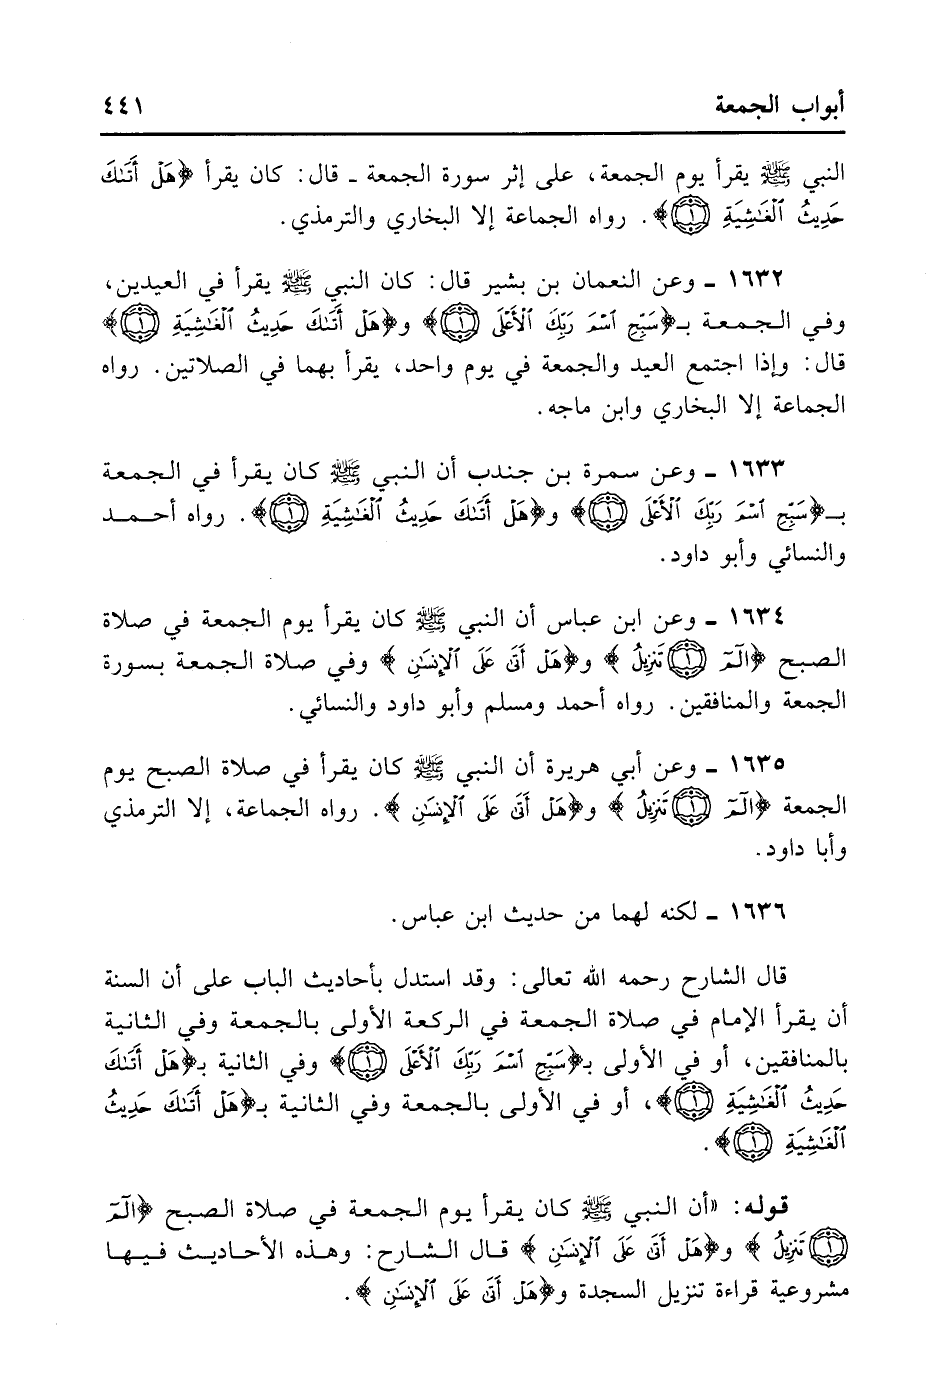 أبواب الجمعة ٤٤١
النبي ﷺ يقرأ يوم الجمعة، على إثر سورة الجمعة ـ قال: كان يقرأ ﴿هَلْ أَتَىٰكَ
حَدِيثُ ٱلْغَـٰشِيَةِ ۝١﴾. رواه الجماعة إلا البخاري والترمذي.
١٦٣٢ ـ وعن النعمان بن بشير قال: كان النبي ﷺ يقرأ في العيدين،
وفي الجمعة بـ﴿سَبِّحِ ٱسْمَ رَبِّكَ ٱلْأَعْلَى ۝١﴾ و﴿هَلْ أَتَىٰكَ حَدِيثُ ٱلْغَـٰشِيَةِ ۝١﴾
قال: وإذا اجتمع العيد والجمعة في يوم واحد، يقرأ بهما في الصلاتين. رواه
الجماعة إلا البخاري وابن ماجه.
١٦٣٣ ـ وعن سمرة بن جندب أن النبي ﷺ كان يقرأ في الجمعة
بـ﴿سَبِّحِ ٱسْمَ رَبِّكَ ٱلْأَعْلَى ۝١﴾ و﴿هَلْ أَتَىٰكَ حَدِيثُ ٱلْغَـٰشِيَةِ ۝١﴾. رواه أحمد
والنسائي وأبو داود.
١٦٣٤ ـ وعن ابن عباس أن النبي ﷺ كان يقرأ يوم الجمعة في صلاة
الصبح ﴿الٓمٓ ۝١ تَنزِيلُ﴾ و﴿هَلْ أَتَىٰ عَلَى ٱلْإِنسَـٰنِ﴾ وفي صلاة الجمعة بسورة
الجمعة والمنافقين. رواه أحمد ومسلم وأبو داود والنسائي.
١٦٣٥ ـ وعن أبي هريرة أن النبي ﷺ كان يقرأ في صلاة الصبح يوم
الجمعة ﴿الٓمٓ ۝١ تَنزِيلُ﴾ و﴿هَلْ أَتَىٰ عَلَى ٱلْإِنسَـٰنِ﴾. رواه الجماعة، إلا الترمذي
وأبا داود.
١٦٣٦ ـ لكنه لهما من حديث ابن عباس.
قال الشارح رحمه الله تعالى: وقد استدل بأحاديث الباب على أن السنة
أن يقرأ الإمام في صلاة الجمعة في الركعة الأولى بالجمعة وفي الثانية
بالمنافقين، أو في الأولى بـ﴿سَبِّحِ ٱسْمَ رَبِّكَ ٱلْأَعْلَى ۝١﴾ وفي الثانية بـ﴿هَلْ أَتَىٰكَ
حَدِيثُ ٱلْغَـٰشِيَةِ ۝١﴾، أو في الأولى بالجمعة وفي الثانية بـ﴿هَلْ أَتَىٰكَ حَدِيثُ
ٱلْغَـٰشِيَةِ ۝١﴾.
قوله: «أن النبي ﷺ كان يقرأ يوم الجمعة في صلاة الصبح ﴿الٓمٓ
۝١ تَنزِيلُ﴾ و﴿هَلْ أَتَىٰ عَلَى ٱلْإِنسَـٰنِ﴾ قال الشارح: وهذه الأحاديث فيها
مشروعية قراءة تنزيل السجدة و﴿هَلْ أَتَىٰ عَلَى ٱلْإِنسَـٰنِ﴾.